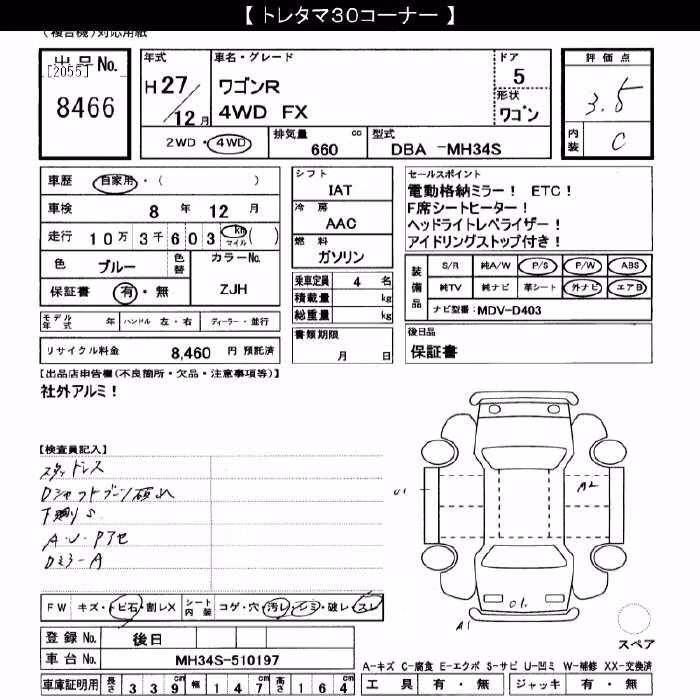 【 トレタマ30コーナー 】
(複合機)対応用紙
出品No.
[2055]
8466
年式
H 27/12月
車名・グレード
ワゴンR
4WD FX
ドア
5
形状
ワゴン
2WD・4WD
排気量
660 cc
型式
DBA -MH34S
評価点
3.5
内装
C
車歴 自家用・( )
車検 8 年 12 月
走行 10万 3千 6 0 3 km マイル ( )
色 ブルー
色替
カラーNo.
ZJH
保証書 有・無
モデル年式 年 ハンドル 左・右 ディーラー・並行
リサイクル料金 8,460 円 預託済
シフト
IAT
冷房
AAC
燃料
ガソリン
乗車定員 4 名
積載量 kg
総重量 kg
書類期限
月 日
セールスポイント
電動格納ミラー! ETC!
F席シートヒーター!
ヘッドライトレベライザー!
アイドリングストップ付き!
装備品
S/R 純A/W P/S P/W ABS
純TV 純ナビ 革シート 外ナビ エアB
ナビ型番:MDV-D403
後日品
保証書
【出品店申告欄(不良箇所・欠品・注意事項等)】
社外アルミ!
【検査員記入】
スタッドレス
Dシャフトブーツ破れ
下廻りS
A・U・Pアセ
DミラーA
U1
A2
U1.
A1
スペア
FW キズ・トビ石・割レX シート内装 コゲ・穴・汚レ・シミ・破レ・スレ
登録No. 後日
車台No. MH34S-510197
車庫証明用 長さ 3 3 9 cm 幅 1 4 7 cm 高さ 1 6 4 cm
A-キズ C-腐食 E-エクボ S-サビ U-凹ミ W-補修 XX-交換済
工具 有・無 ジャッキ 有・無